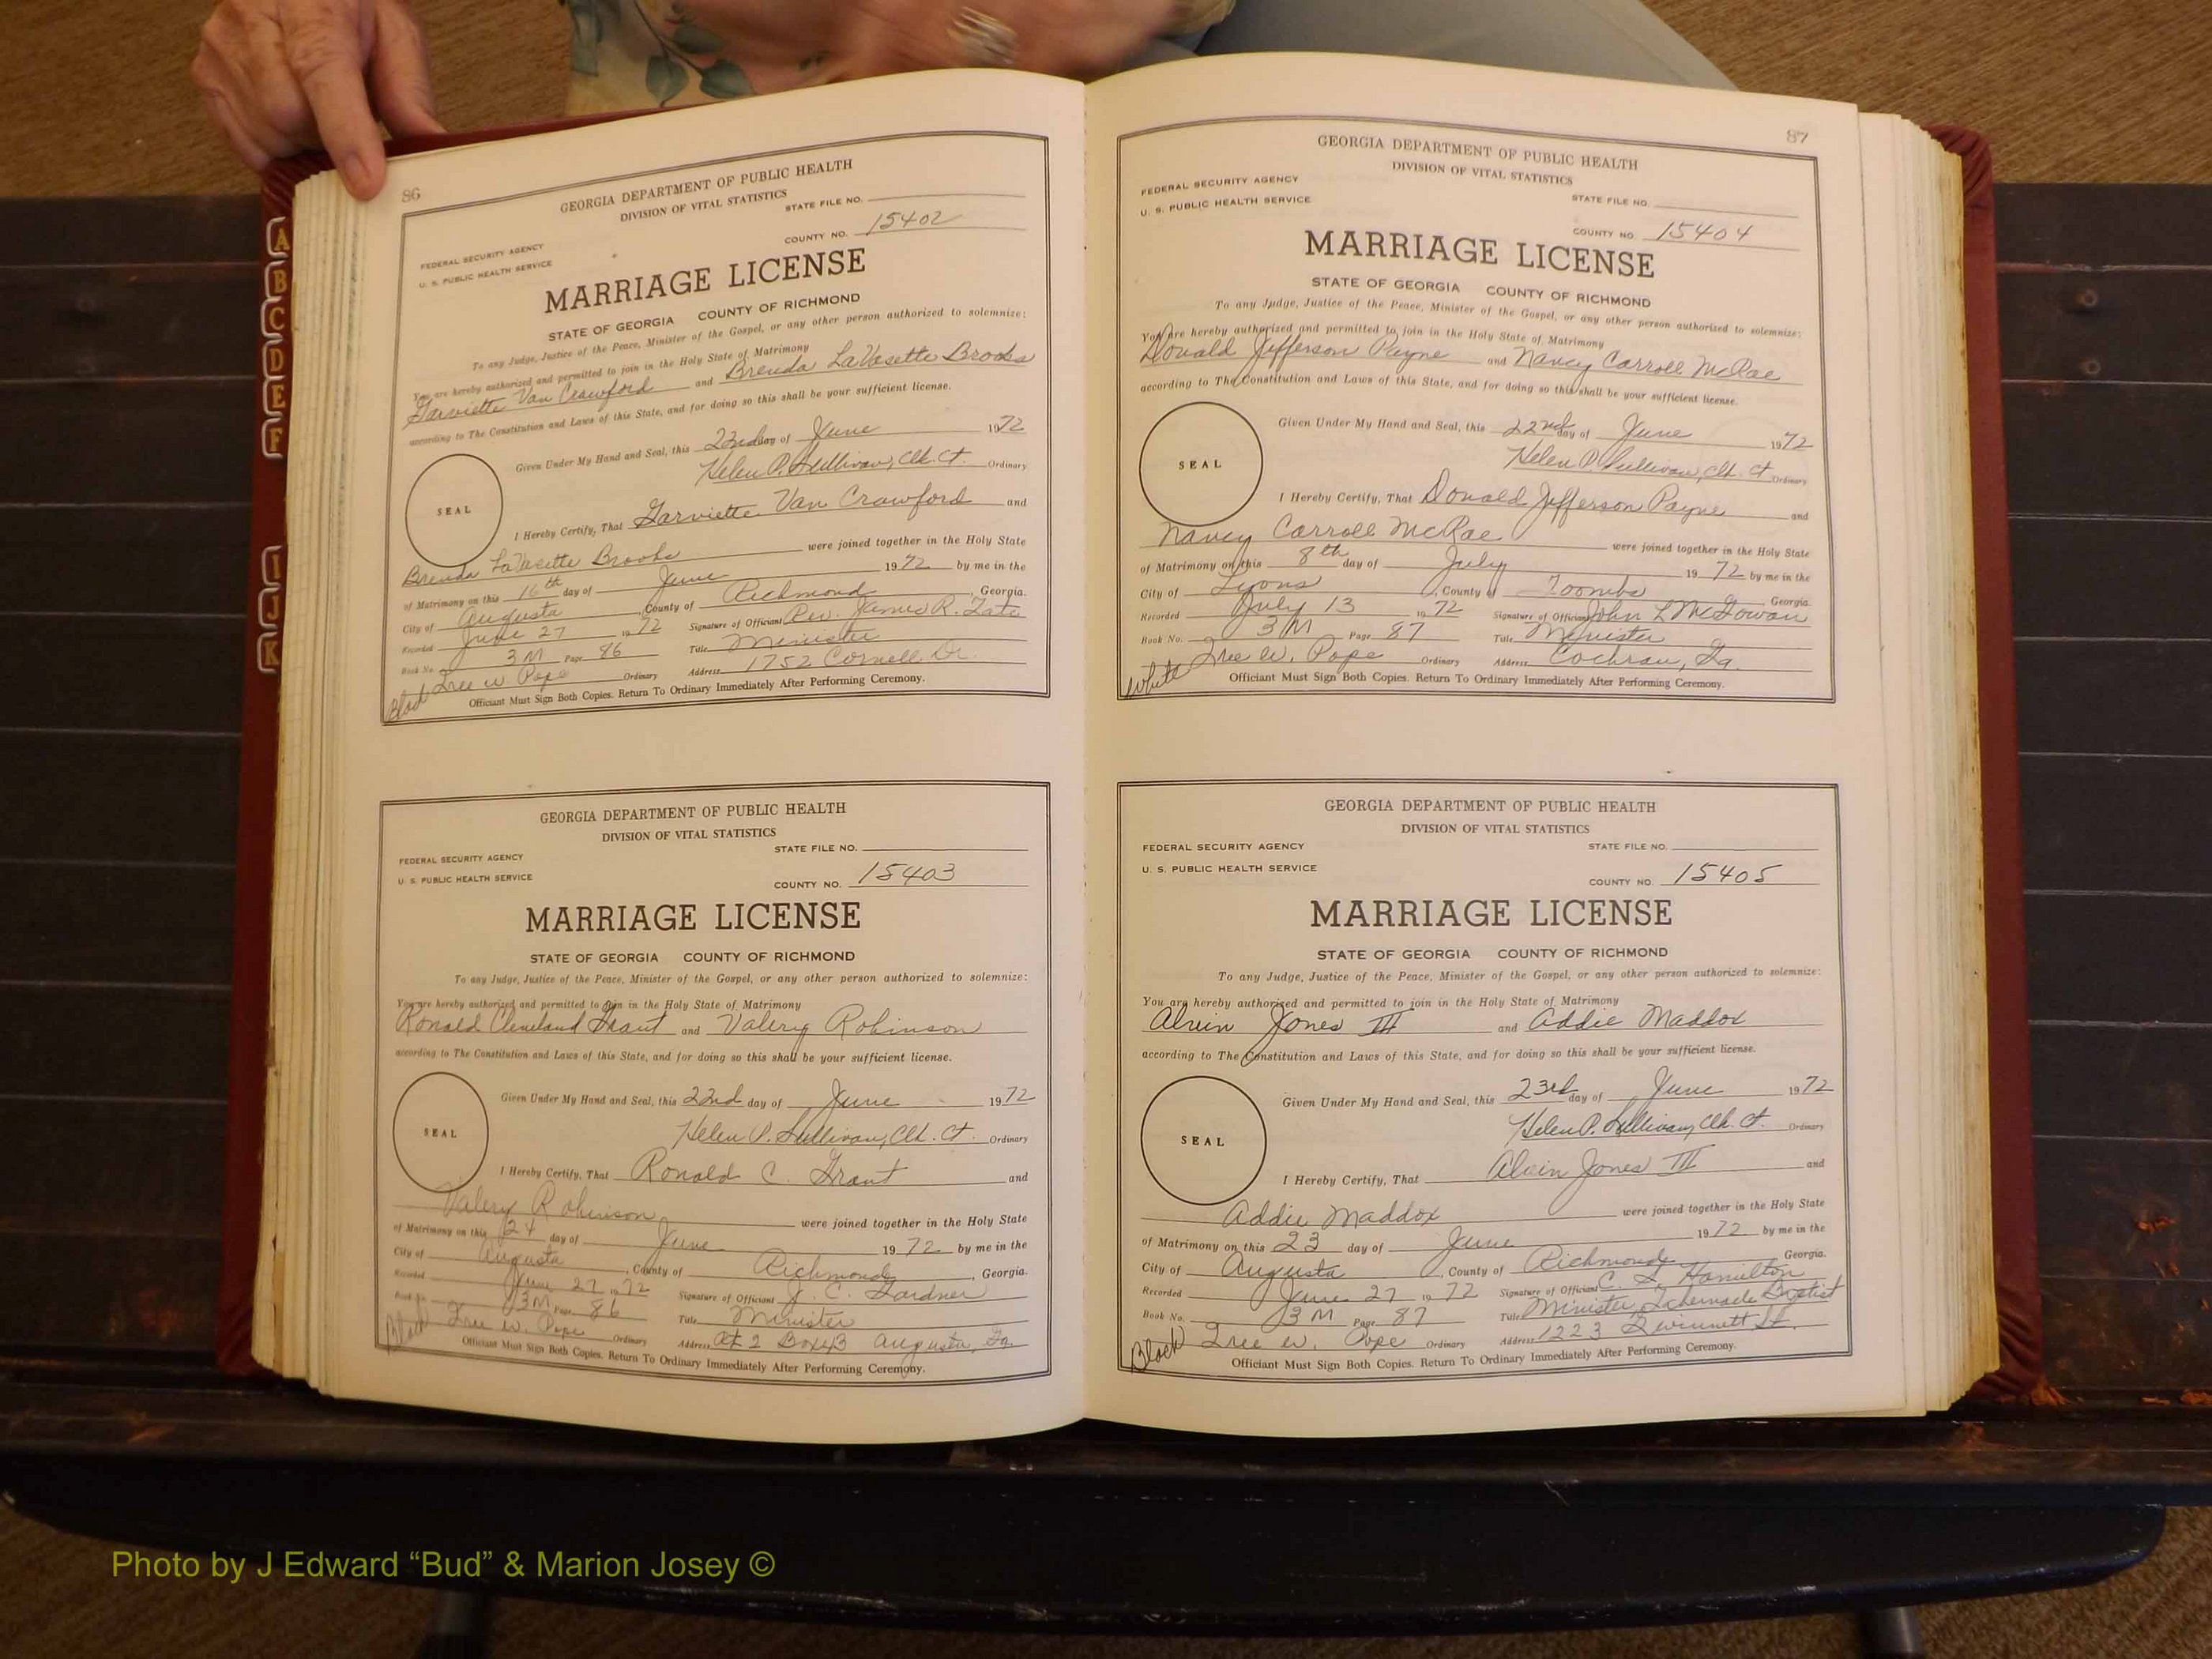 A
B
C
D
E
F
I
J
K
86
GEORGIA DEPARTMENT OF PUBLIC HEALTH
DIVISION OF VITAL STATISTICS
STATE FILE NO.
COUNTY NO. 15402
FEDERAL SECURITY AGENCY
U. S. PUBLIC HEALTH SERVICE
MARRIAGE LICENSE
STATE OF GEORGIA COUNTY OF RICHMOND
To any Judge, Justice of the Peace, Minister of the Gospel, or any other person authorized to solemnize:
You are hereby authorized and permitted to join in the Holy State of Matrimony
Garviette Van Crawford and Brenda LaVasette Brooks
according to The Constitution and Laws of this State, and for doing so this shall be your sufficient license.
Given Under My Hand and Seal, this 23rd day of June 1972
Helen P. Sullivan, Clk. Ct. Ordinary
SEAL
I Hereby Certify, That Garviette Van Crawford and
Brenda LaVasette Brooks were joined together in the Holy State
of Matrimony on this 16th day of June 1972 by me in the
City of Augusta, County of Richmond, Georgia.
Recorded June 27 1972 Signature of Officiant Rev. James R. Tate
Book No. 3M Page 86 Title Minister
Tree W. Pope Ordinary Address 1752 Cornell Dr.
Black Officiant Must Sign Both Copies. Return To Ordinary Immediately After Performing Ceremony.
GEORGIA DEPARTMENT OF PUBLIC HEALTH
DIVISION OF VITAL STATISTICS
STATE FILE NO.
FEDERAL SECURITY AGENCY
U. S. PUBLIC HEALTH SERVICE
COUNTY NO. 15403
MARRIAGE LICENSE
STATE OF GEORGIA COUNTY OF RICHMOND
To any Judge, Justice of the Peace, Minister of the Gospel, or any other person authorized to solemnize:
You are hereby authorized and permitted to join in the Holy State of Matrimony
Ronald Cleveland Grant and Valery Robinson
according to The Constitution and Laws of this State, and for doing so this shall be your sufficient license.
Given Under My Hand and Seal, this 22nd day of June 1972
Helen P. Sullivan, Clk. Ct. Ordinary
SEAL
I Hereby Certify, That Ronald C. Grant and
Valery Robinson were joined together in the Holy State
of Matrimony on this 24 day of June 1972 by me in the
City of Augusta, County of Richmond, Georgia.
Recorded June 27 1972 Signature of Officiant J. C. Gardner
Book No. 3M Page 86 Title Minister
Black Tree W. Pope Ordinary Address Rt 2 Box 43 Augusta, Ga.
Officiant Must Sign Both Copies. Return To Ordinary Immediately After Performing Ceremony.
87
GEORGIA DEPARTMENT OF PUBLIC HEALTH
DIVISION OF VITAL STATISTICS
FEDERAL SECURITY AGENCY
U. S. PUBLIC HEALTH SERVICE
STATE FILE NO.
COUNTY NO. 15404
MARRIAGE LICENSE
STATE OF GEORGIA COUNTY OF RICHMOND
To any Judge, Justice of the Peace, Minister of the Gospel, or any other person authorized to solemnize:
You are hereby authorized and permitted to join in the Holy State of Matrimony
Donald Jefferson Payne and Nancy Carroll McRae
according to The Constitution and Laws of this State, and for doing so this shall be your sufficient license.
Given Under My Hand and Seal, this 22nd day of June 1972
Helen P. Sullivan, Clk. Ct Ordinary
SEAL
I Hereby Certify, That Donald Jefferson Payne and
Nancy Carroll McRae were joined together in the Holy State
of Matrimony on this 8th day of July 1972 by me in the
City of Lyons, County of Toombs Georgia.
Recorded July 13 1972 Signature of Officiant John L McGowan
Book No. 3M Page 87 Title Minister
White Tree W. Pope Ordinary Address Cochran, Ga.
Officiant Must Sign Both Copies. Return To Ordinary Immediately After Performing Ceremony.
GEORGIA DEPARTMENT OF PUBLIC HEALTH
DIVISION OF VITAL STATISTICS
FEDERAL SECURITY AGENCY STATE FILE NO.
U. S. PUBLIC HEALTH SERVICE
COUNTY NO. 15405
MARRIAGE LICENSE
STATE OF GEORGIA COUNTY OF RICHMOND
To any Judge, Justice of the Peace, Minister of the Gospel, or any other person authorized to solemnize:
You are hereby authorized and permitted to join in the Holy State of Matrimony
Alvin Jones III and Addie Maddox
according to The Constitution and Laws of this State, and for doing so this shall be your sufficient license.
Given Under My Hand and Seal, this 23rd day of June 1972
Helen P. Sullivan, Clk. Ct. Ordinary
SEAL
I Hereby Certify, That Alvin Jones III and
Addie Maddox were joined together in the Holy State
of Matrimony on this 23 day of June 1972 by me in the
City of Augusta, County of Richmond, Georgia.
Recorded June 27 1972 Signature of Officiant C. S. Hamilton
Book No. 3M Page 87 Title Minister Tabernacle Baptist
Black Tree W. Pope Ordinary Address 1223 Gwinnett St.
Officiant Must Sign Both Copies. Return To Ordinary Immediately After Performing Ceremony.
Photo by J Edward “Bud” & Marion Josey ©